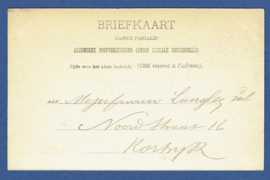 BRIEFKAART
(CARTE POSTALE)
ALGEMEENE POSTVEREENIGING (UNION POSTALE UNIVERSELLE)
Zijde voor het adres bestemd. (Côté réservé à l'adresse).
AAN
Noord Straat 16
Kortrijk